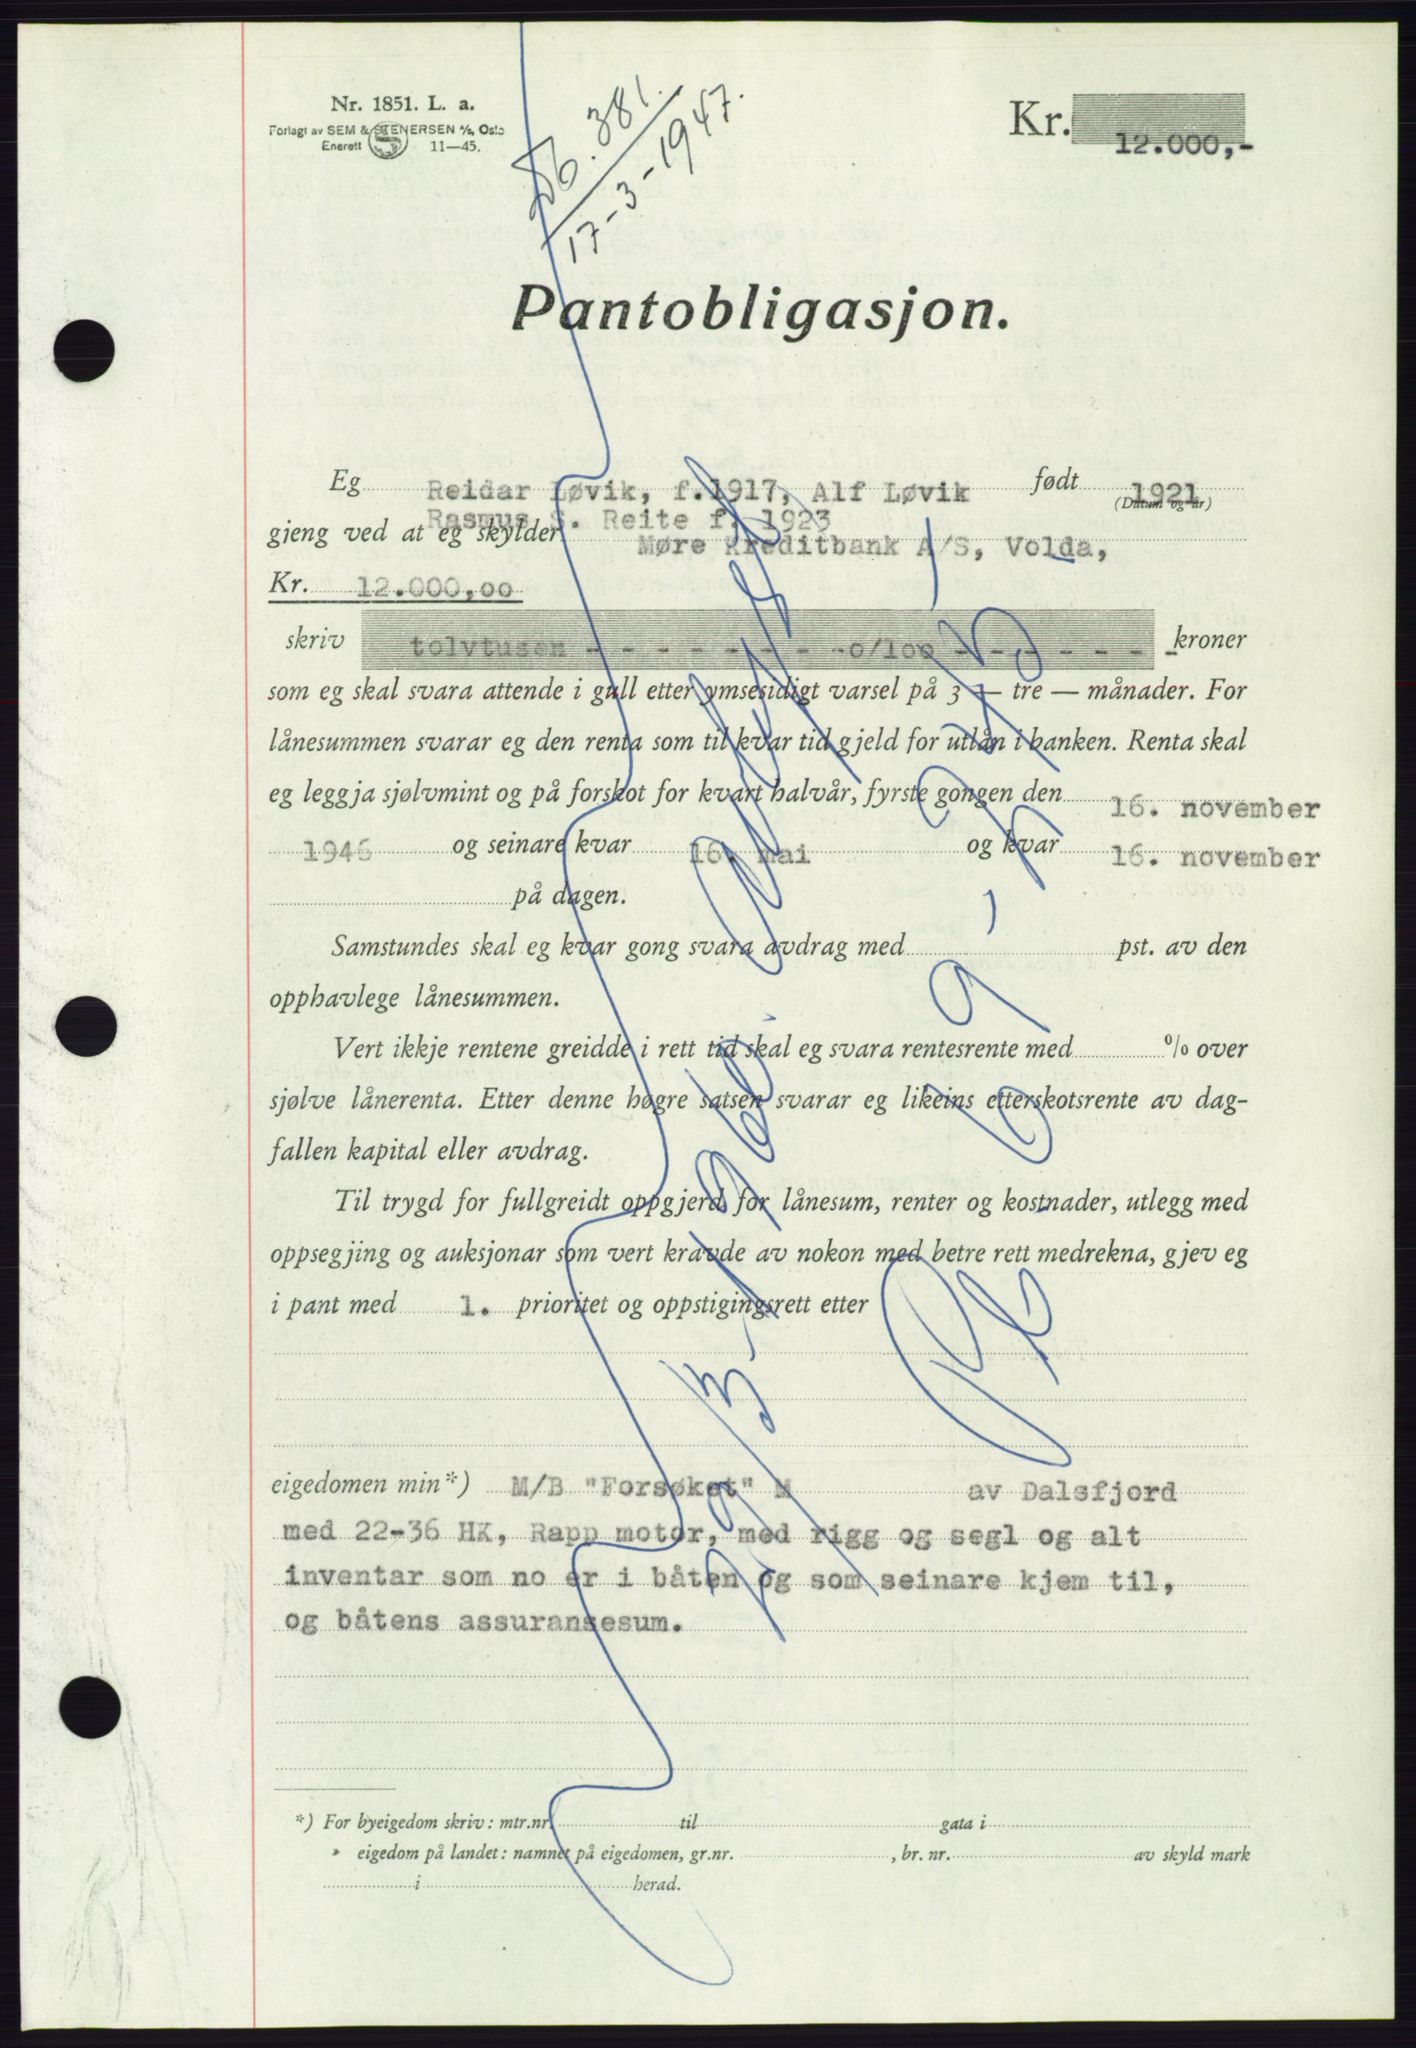 Nr. 1851. L. a.
Forlagt av SEM & STENERSEN A/s, Oslo
Enerett 11—45.
381.
17-3-1947.
Kr. 12.000,-
Pantobligasjon.
Eg Reidar Løvik, f.1917, Alf Løvik født 1921
(Datum og år)
Rasmus S. Reite f. 1923
gjeng ved at eg skylder Møre Kreditbank A/S, Volda,
Kr. 12.000,00
skriv tolvtusen - - - - - - - -o/100 - - - - - - - kroner
som eg skal svara attende i gull etter ymsesidigt varsel på 3 — tre — månader. For
lånesummen svarar eg den renta som til kvar tid gjeld for utlån i banken. Renta skal
eg leggja sjølvmint og på forskot for kvart halvår, fyrste gongen den 16. november
1946 og seinare kvar 16. mai og kvar 16. november
på dagen.
Samstundes skal eg kvar gong svara avdrag med pst. av den
opphavlege lånesummen.
Vert ikkje rentene greidde i rett tid skal eg svara rentesrente med % over
sjølve lånerenta. Etter denne høgre satsen svarar eg likeins etterskotsrente av dag-
fallen kapital eller avdrag.
Til trygd for fullgreidt oppgjerd for lånesum, renter og kostnader, utlegg med
oppsegjing og auksjonar som vert kravde av nokon med betre rett medrekna, gjev eg
i pant med 1. prioritet og oppstigingsrett etter
eigedomen min*) M/B "Forsøket" M av Dalsfjord
med 22-36 HK, Rapp motor, med rigg og segl og alt
inventar som no er i båten og som seinare kjem til,
og båtens assuransesum.
*) For byeigedom skriv: mtr.nr. til gata i
» eigedom på landet: namnet på eigedomen, gr.nr. , br. nr. av skyld mark
i herad.